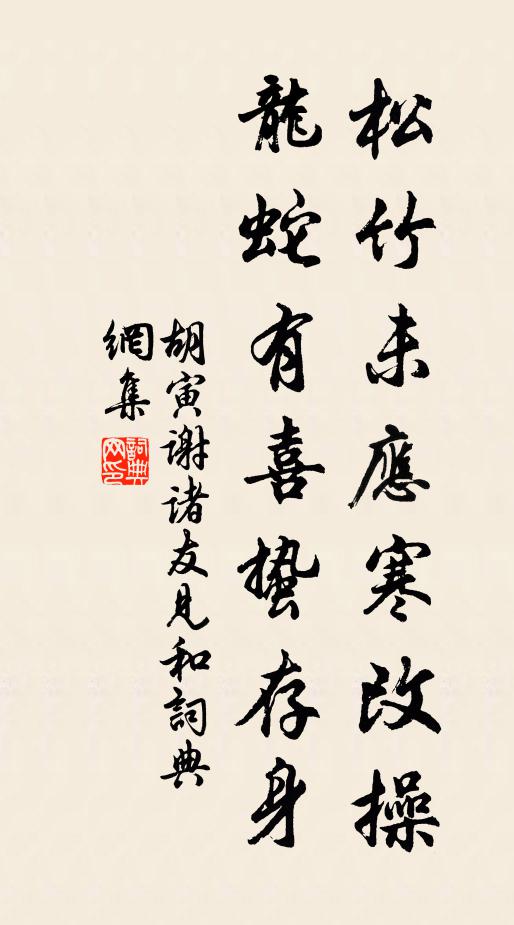 松竹未應寒改操
龍蛇有喜蟄存身
胡寅謝诸友見和詞典
網集
詞典網印